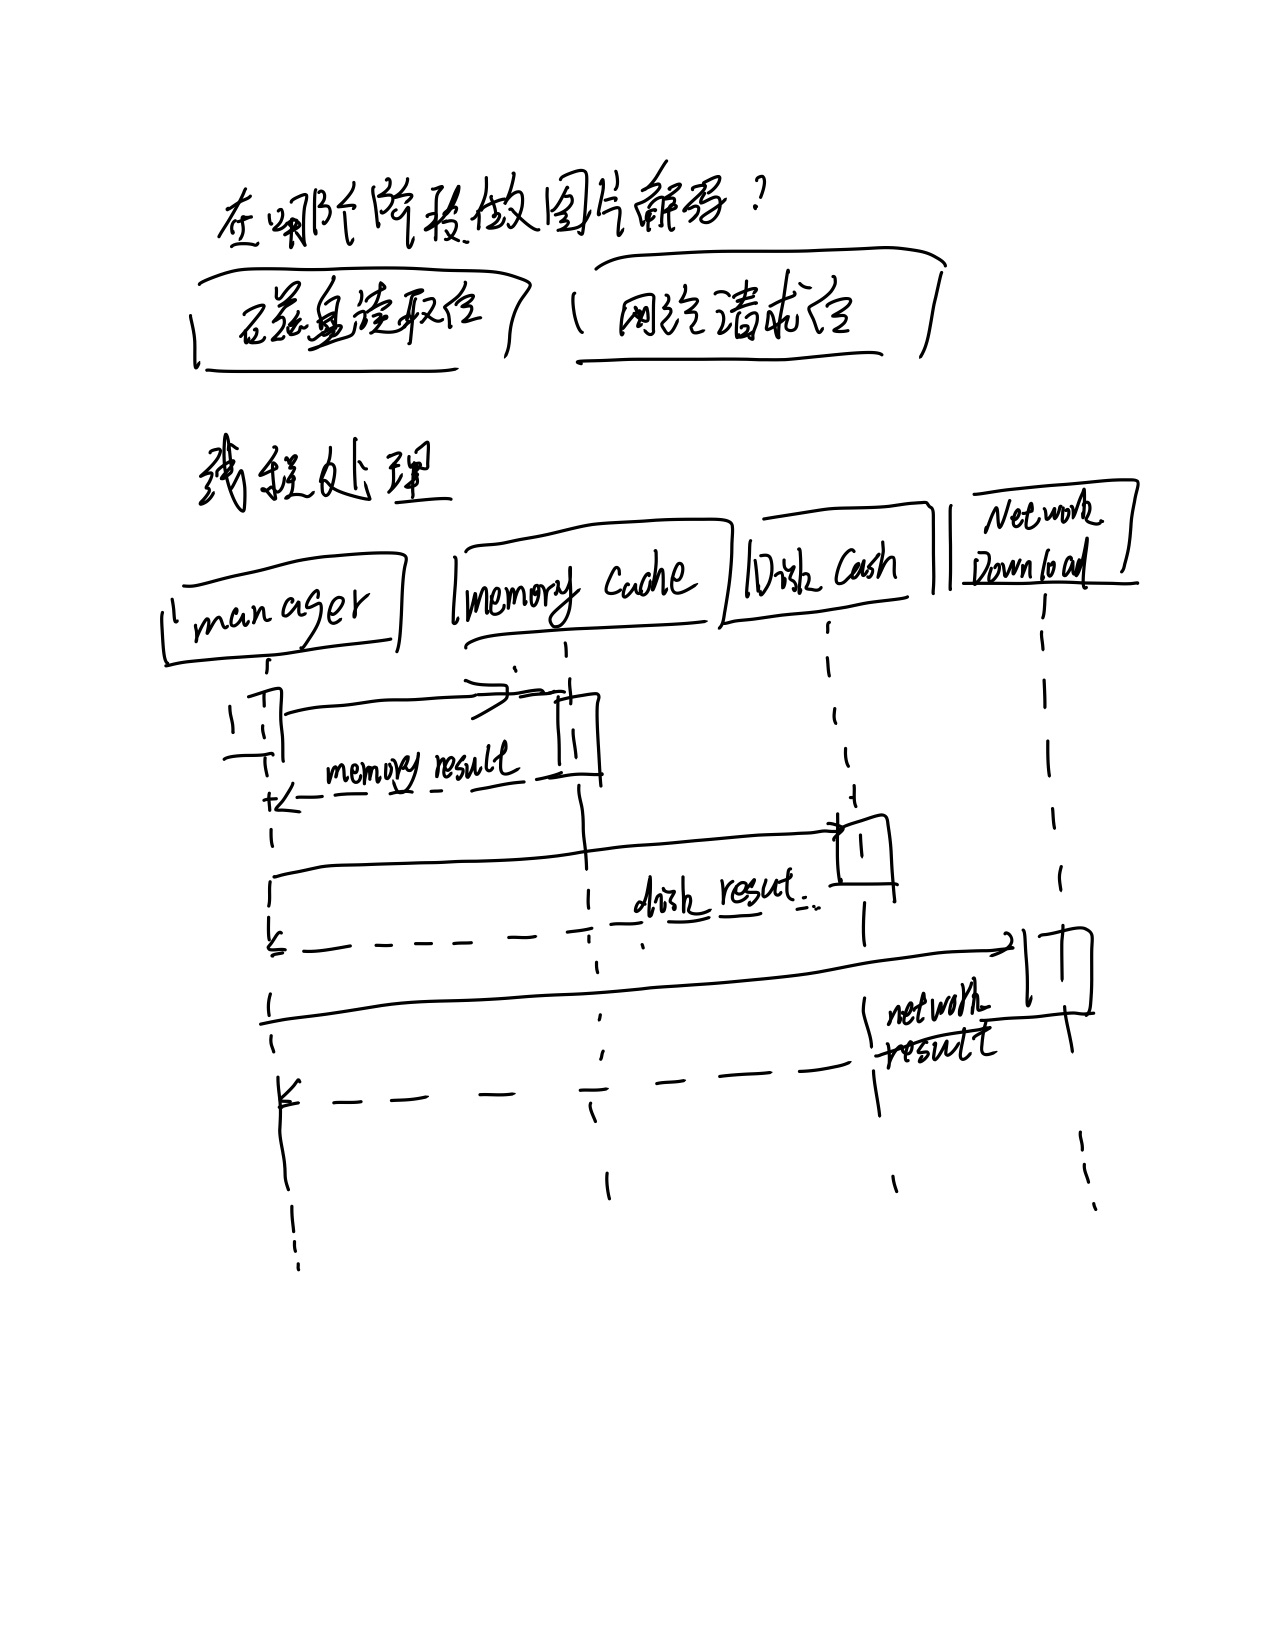 在哪个阶段做图片解码？
磁盘读取后 网络请求后
线程处理
manager memory Cache Disk Cash Network Download
memory result
disk resut
network
result